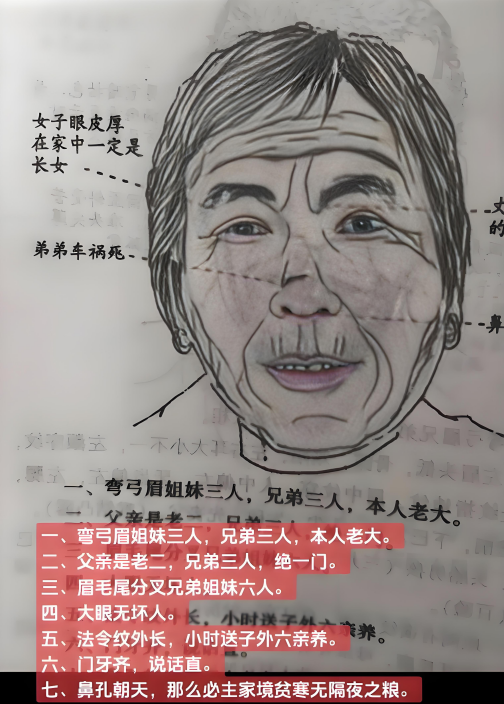 女子眼皮厚
在家中一定是
长女
弟弟车祸死
的
鼻
一、弯弓眉姐妹三人，兄弟三人，本人老大。
二、父亲是老二，兄弟三人，
一、弯弓眉姐妹三人，兄弟三人，本人老大。
二、父亲是老二，兄弟三人，绝一门。
三、眉毛尾分叉兄弟姐妹六人。
四、大眼无坏人。
五、法令纹外长，小时送子外六亲养。
六、门牙齐，说话直。
七、鼻孔朝天，那么必主家境贫寒无隔夜之粮。